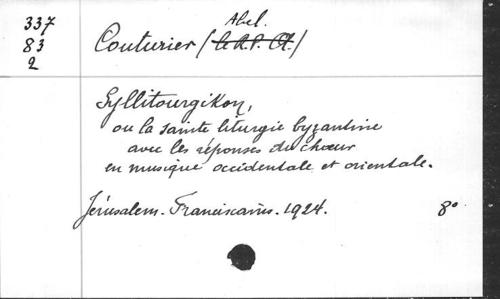 337
83
2
Abel.
Couturier (le R.P. A.)
Syllitourgikon,
ou la sainte liturgie byzantine
avec les réponses du chœur
en musique occidentale et orientale.
Jérusalem. Franciscains. 1924. 8º